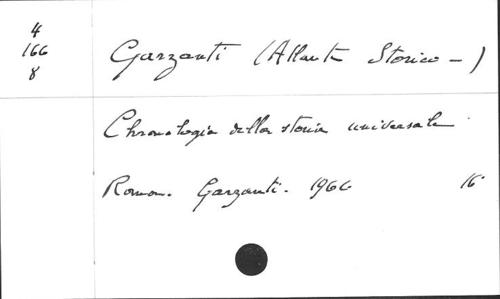 4
166
8
Garzanti (Atlante Storico -)
Chronologia della storia universale
Roma. Garzanti. 1966 16°